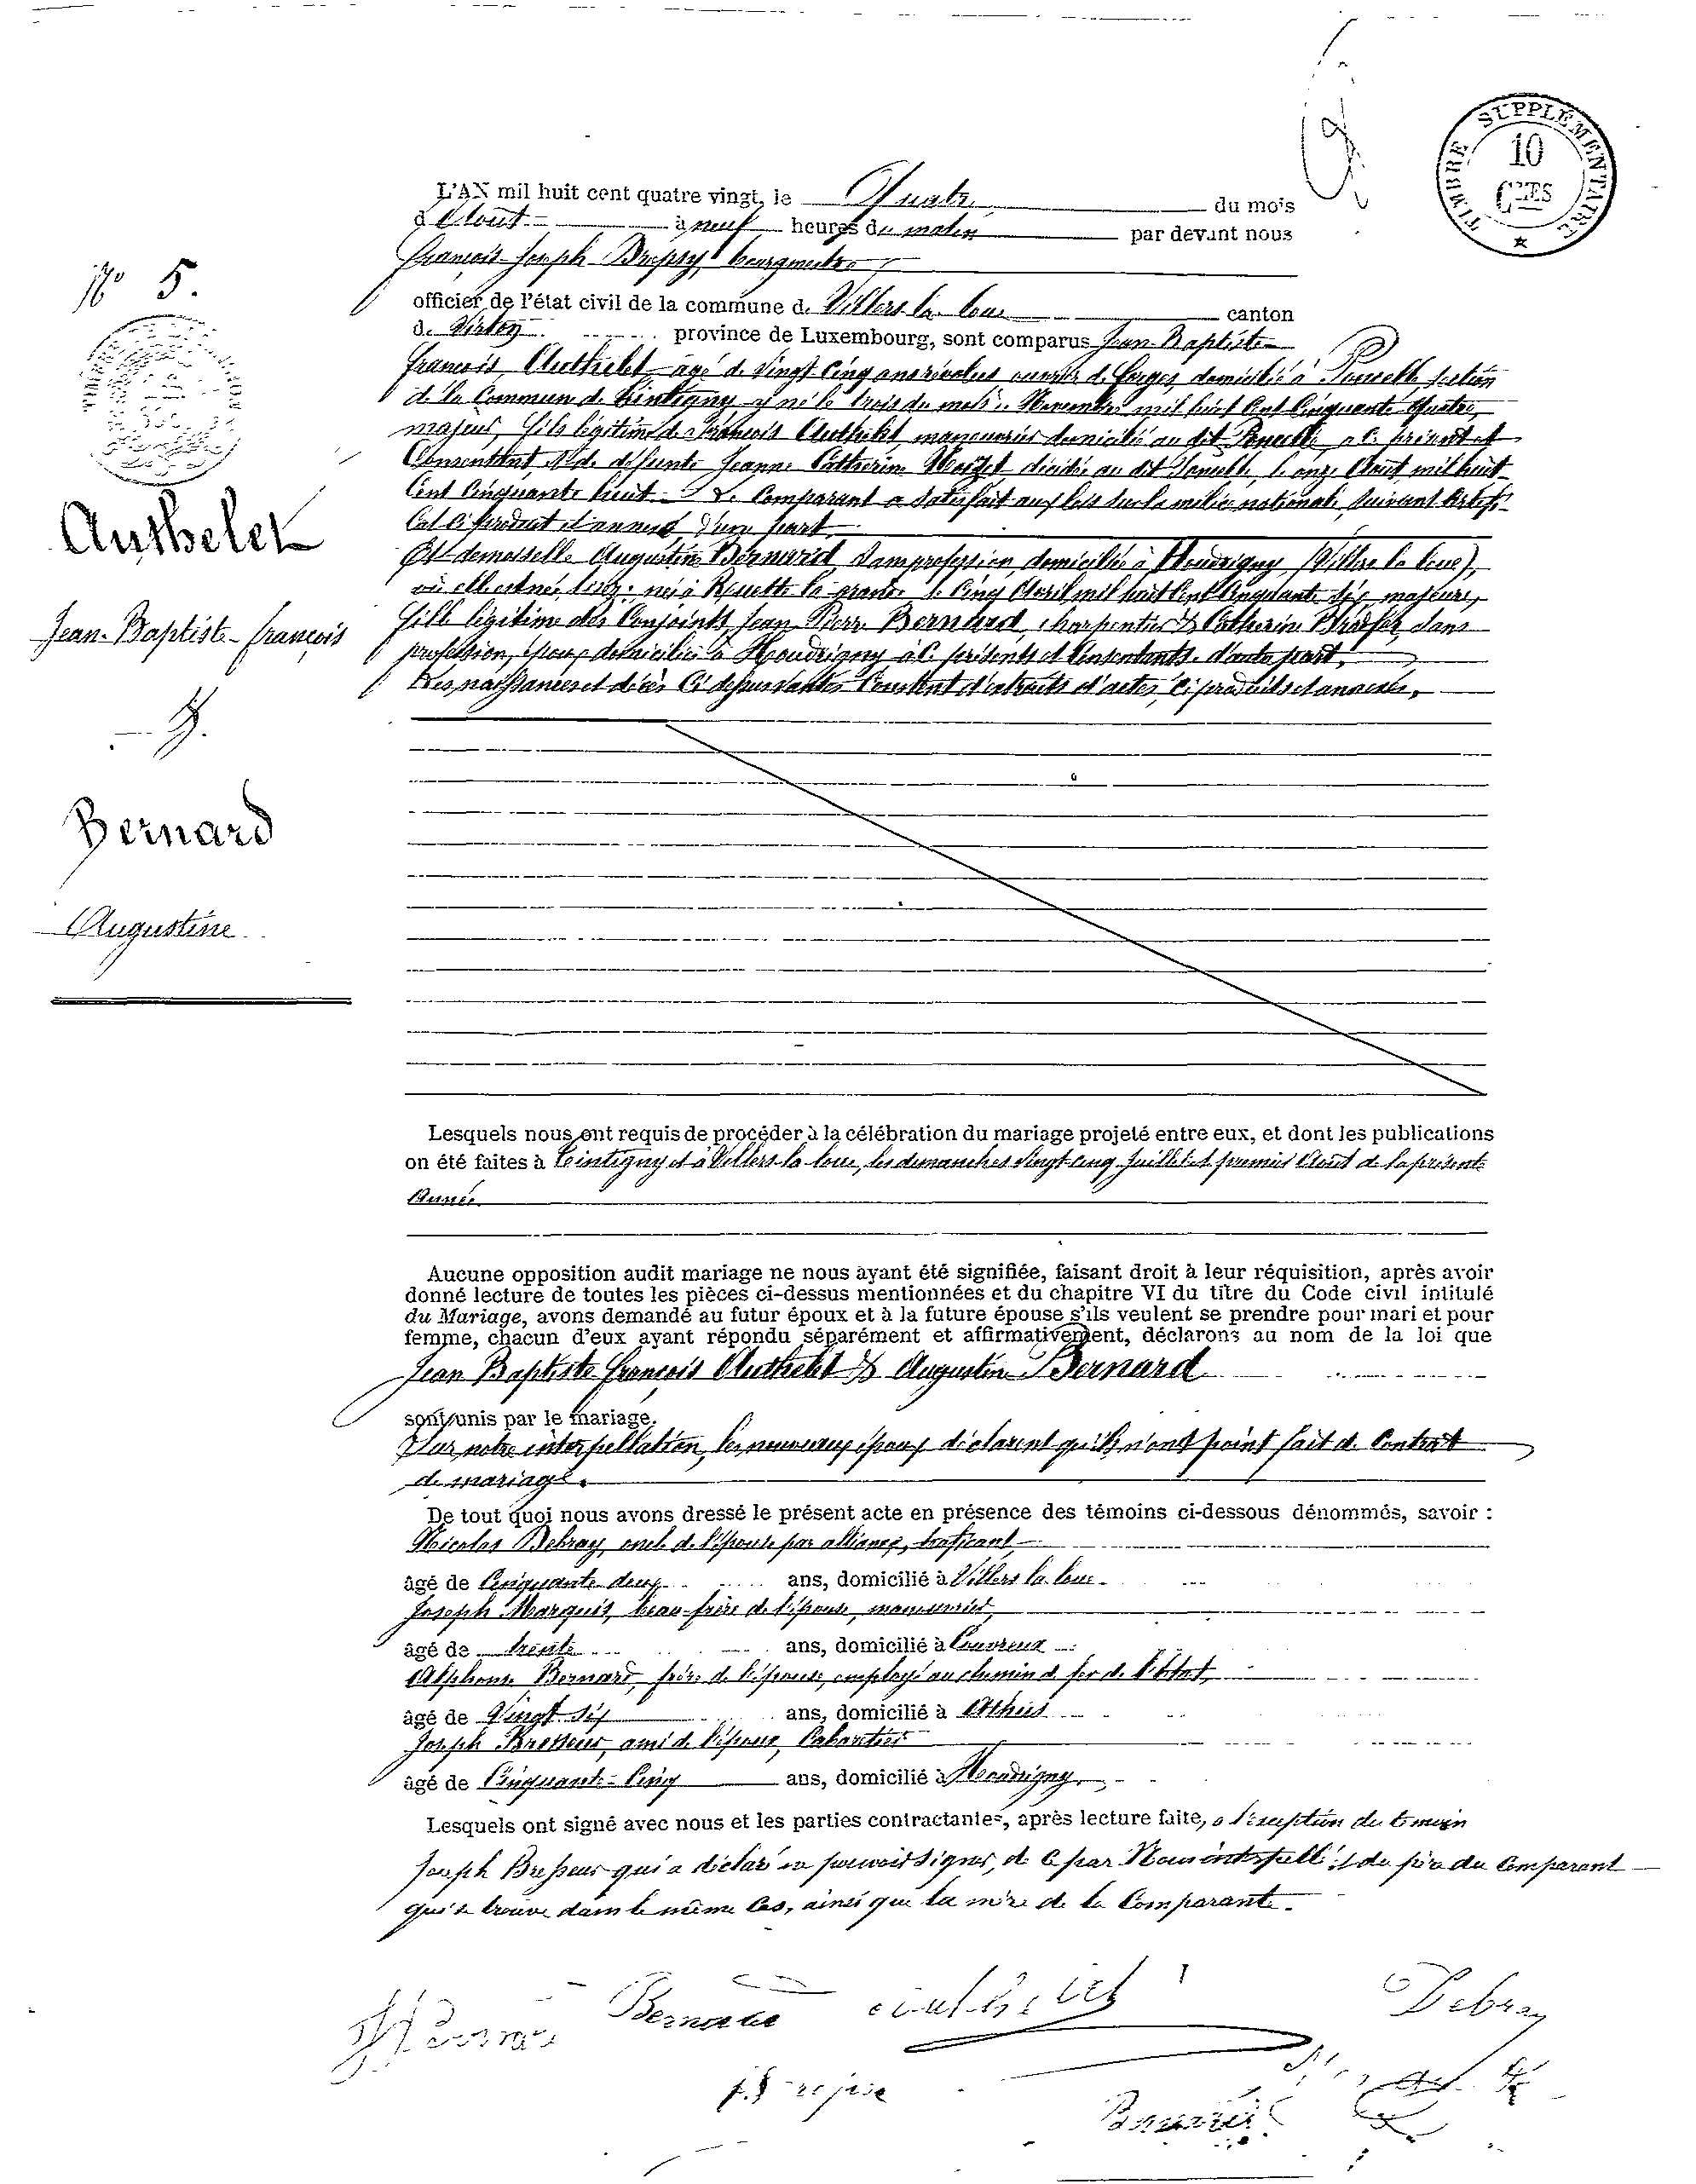 TIMBRE SUPPLÉMENTAIRE
10
CTES
L'AN mil huit cent quatre vingt, le Quatre du mois
d'Août à neuf heures du matin par devant nous
François Joseph bourgmestre
officier de l'état civil de la commune de Villers la loue canton
de Virton province de Luxembourg, sont comparus Jean-Baptiste
François Authelet, âgé de Vingt Cinq ans révolus ouvrier de forges, domicilié à section
de la Commune de Tintigny y né le trois du mois de Novembre mil huit Cent Cinquante Quatre,
majeur, fils légitime de François Authelet, manouvrier domicilié au dit à ce présent et
Consentant & de défunte Jeanne Catherine décédée au dit le onze Août mil huit
Cent Cinquante huit. Le Comparant a satisfait aux lois sur la milice nationale, suivant Certifi-
cat ci produit et annexé d'une part.
Et demoiselle Augustine Bernard, sans profession, domiciliée à Houdrigny (Villers la loue),
où elle est née, lisez: née à Ruette la grande le Cinq Avril mil huit Cent Cinquante six majeure,
fille légitime des Conjoints Jean Pierre Bernard, charpentier & Catherine sans
profession, époux domiciliés à Houdrigny à ce présents et Consentants. d'autre part.
Les naissances et décès Ci dessus Constent d'extraits d'actes, Ci produits et annexés.
N° 5.
Authelet
Jean-Baptiste-François
&
Bernard
Augustine
Lesquels nous ont requis de procéder à la célébration du mariage projeté entre eux, et dont les publications
on été faites à Tintigny et à Villers la loue, les dimanches Vingt cinq Juillet et premier Août de la présente
Année.
Aucune opposition audit mariage ne nous ayant été signifiée, faisant droit à leur réquisition, après avoir
donné lecture de toutes les pièces ci-dessus mentionnées et du chapitre VI du titre du Code civil intitulé
du Mariage, avons demandé au futur époux et à la future épouse s'ils veulent se prendre pour mari et pour
femme, chacun d'eux ayant répondu séparément et affirmativement, déclarons au nom de la loi que
Jean Baptiste François Authelet & Augustine Bernard
sont unis par le mariage.
Sur notre interpellation, les nouveaux époux déclarent qu'ils n'ont point fait de Contrat
de mariage.
De tout quoi nous avons dressé le présent acte en présence des témoins ci-dessous dénommés, savoir :
Nicolas Debray, oncle de l'épouse par alliance, trafiquant
âgé de Cinquante deux ans, domicilié à Villers la loue
Joseph Marquis, beau-frère de l'épouse, manouvrier,
âgé de trente ans, domicilié à Couvreux
Alphonse Bernard, frère de l'épouse, employé au chemin de fer de l'Etat,
âgé de Vingt Six ans, domicilié à Athus
Joseph Bresseur, ami de l'épouse, Cabaretier
âgé de Cinquante-Cinq ans, domicilié à Houdrigny,
Lesquels ont signé avec nous et les parties contractantes, après lecture faite, à l'exception du témoin
Joseph Bresseur qui a déclaré ne pouvoir signer, de ce par Nous interpellé, & du père du Comparant
qui se trouve dans le même Cas, ainsi que la mère de la Comparante.
Bernard
Debray